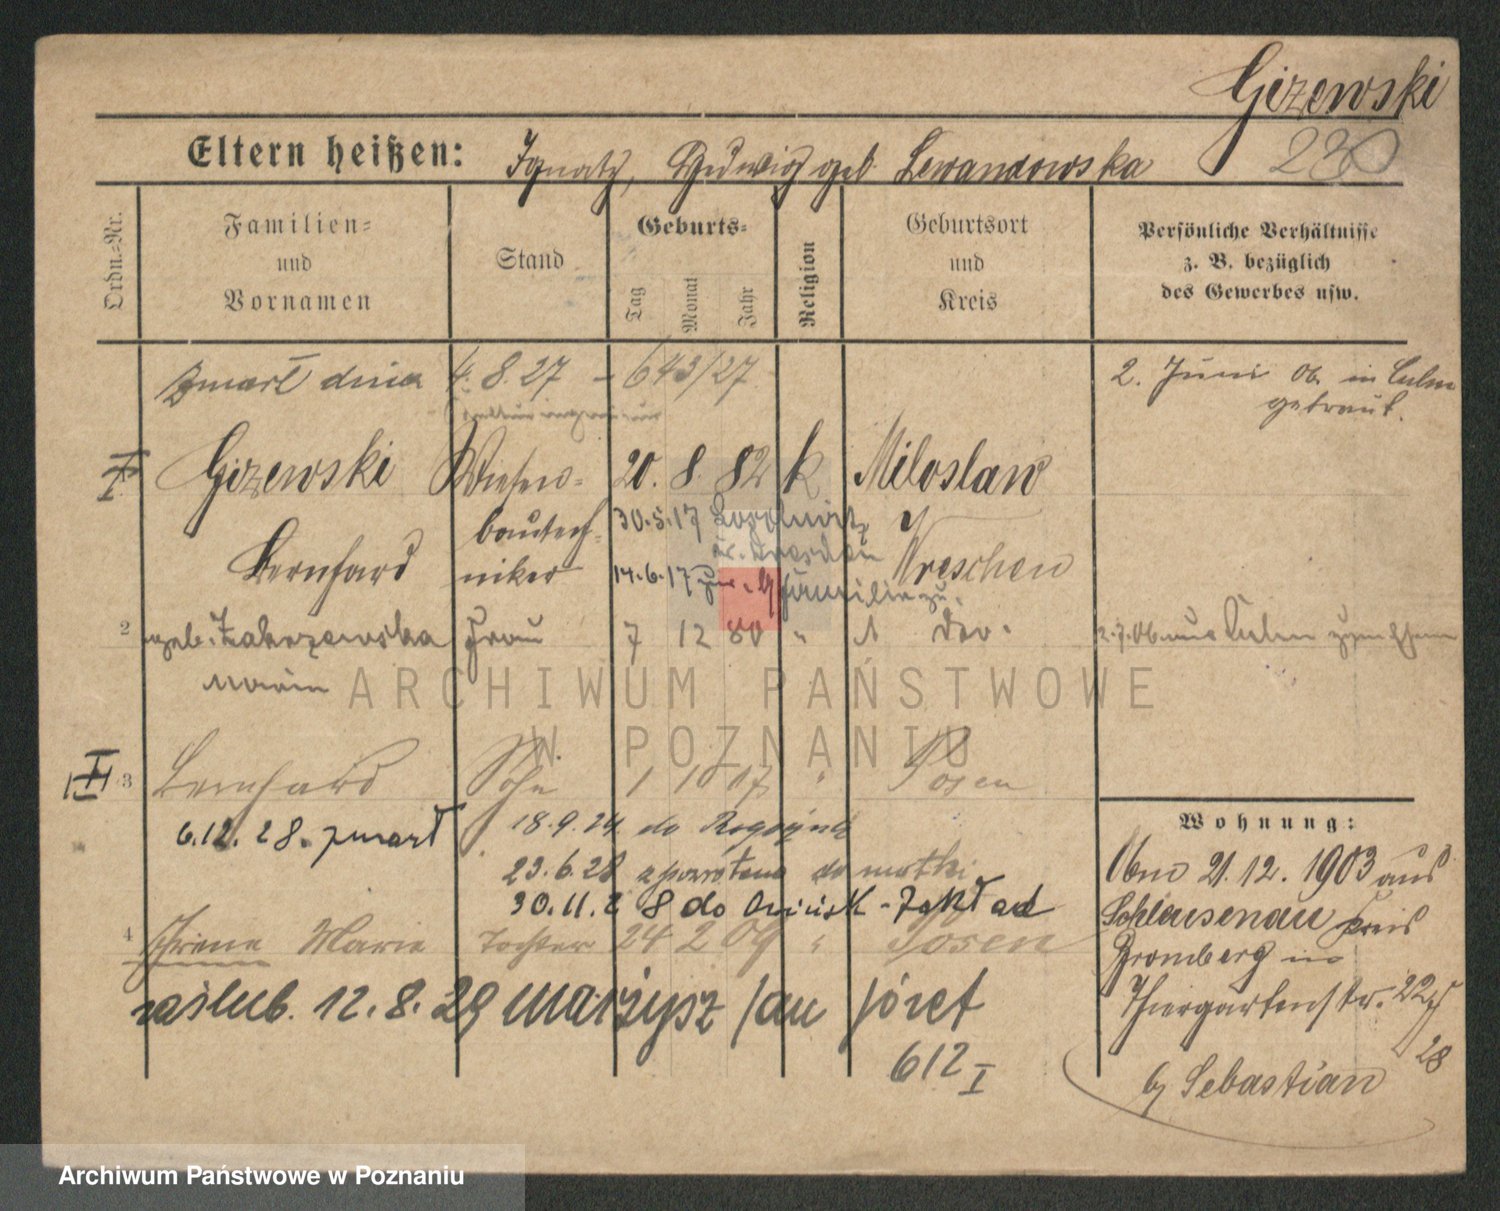 Gizewski
230
Eltern heißen: Ignatz, Hedwig geb. Lewandowska
Ordn.-Nr.
Familien- und Vornamen
Stand
Geburts-
Tag
Monat
Jahr
Religion
Geburtsort und Kreis
Persönliche Verhältnisse
z. B. bezüglich
des Gewerbes usw.
Zmarł dnia 4.8.27 – 643/27
2. Juni 06 in Culm
getraut.
I Gizewski Wiesen- 20. 8. 82 k Miloslaw
bautech- 30.5.17
Bernhard niker Wreschen
14.6.17 zur. Familie zu.
2 geb. Zakrzewska Frau 7 12 80 " Do.
Maria
2.7.06 aus Culm
ARCHIWUM PAŃSTWOWE
W POZNANIU
II 3 Bernhard Sohn 1 10 07 " Posen
6.12.28. zmarł 18.9.24 do
23.6.28 do matki
30.11.28 do
4 Irene Marie Tochter 24 2 09 " Posen
zaślub. 12.8.29 Marzysz Jan Józef
612 I
Wohnung:
21.12.1903 aus
Schleusenau Kreis
Bromberg in
Thiergartenstr. 22
28
b/ Sebastian
Archiwum Państwowe w Poznaniu